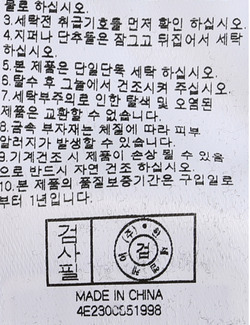 물로 하십시오.
3.세탁전 취급기호를 먼저 확인 하십시오.
4.지퍼나 단추들은 잠그고 뒤집어서 세탁
하십시오.
5.본 제품은 단일단독 세탁 하십시오.
6.탈수 후 그늘에서 건조시켜 주십시오.
7.세탁부주의로 인한 탈색 및 오염된
제품은 교환할 수 없습니다.
8.금속 부자재는 체질에 따라 피부
알러지가 발생할 수 있습니다.
9.기계건조시 제품이 손상 될 수 있음
으로 반드시 자연 건조 하십시오.
10.본 제품의 품질보증기간은 구입일로
부터 1년입니다.
검사필
(주)
검
MADE IN CHINA
4E2300851998